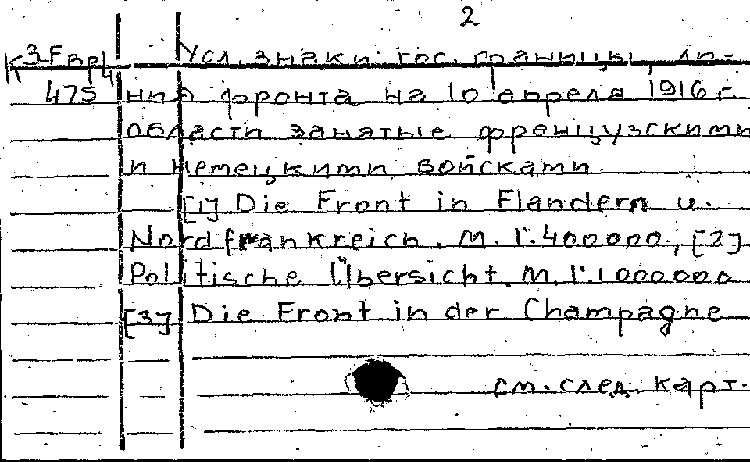 2
К3-Евр4 Усл. знаки: гос. границы, ли-
475 ния фронта на 10 апреля 1916 г.
области занятые французскими
и немецкими войсками
[1] Die Front in Flandern u.
Nordfrankreich. M. 1:400000, [2]
Politische Übersicht. M. 1:1000000
[3] Die Front in der Champagne
см. след. карт.